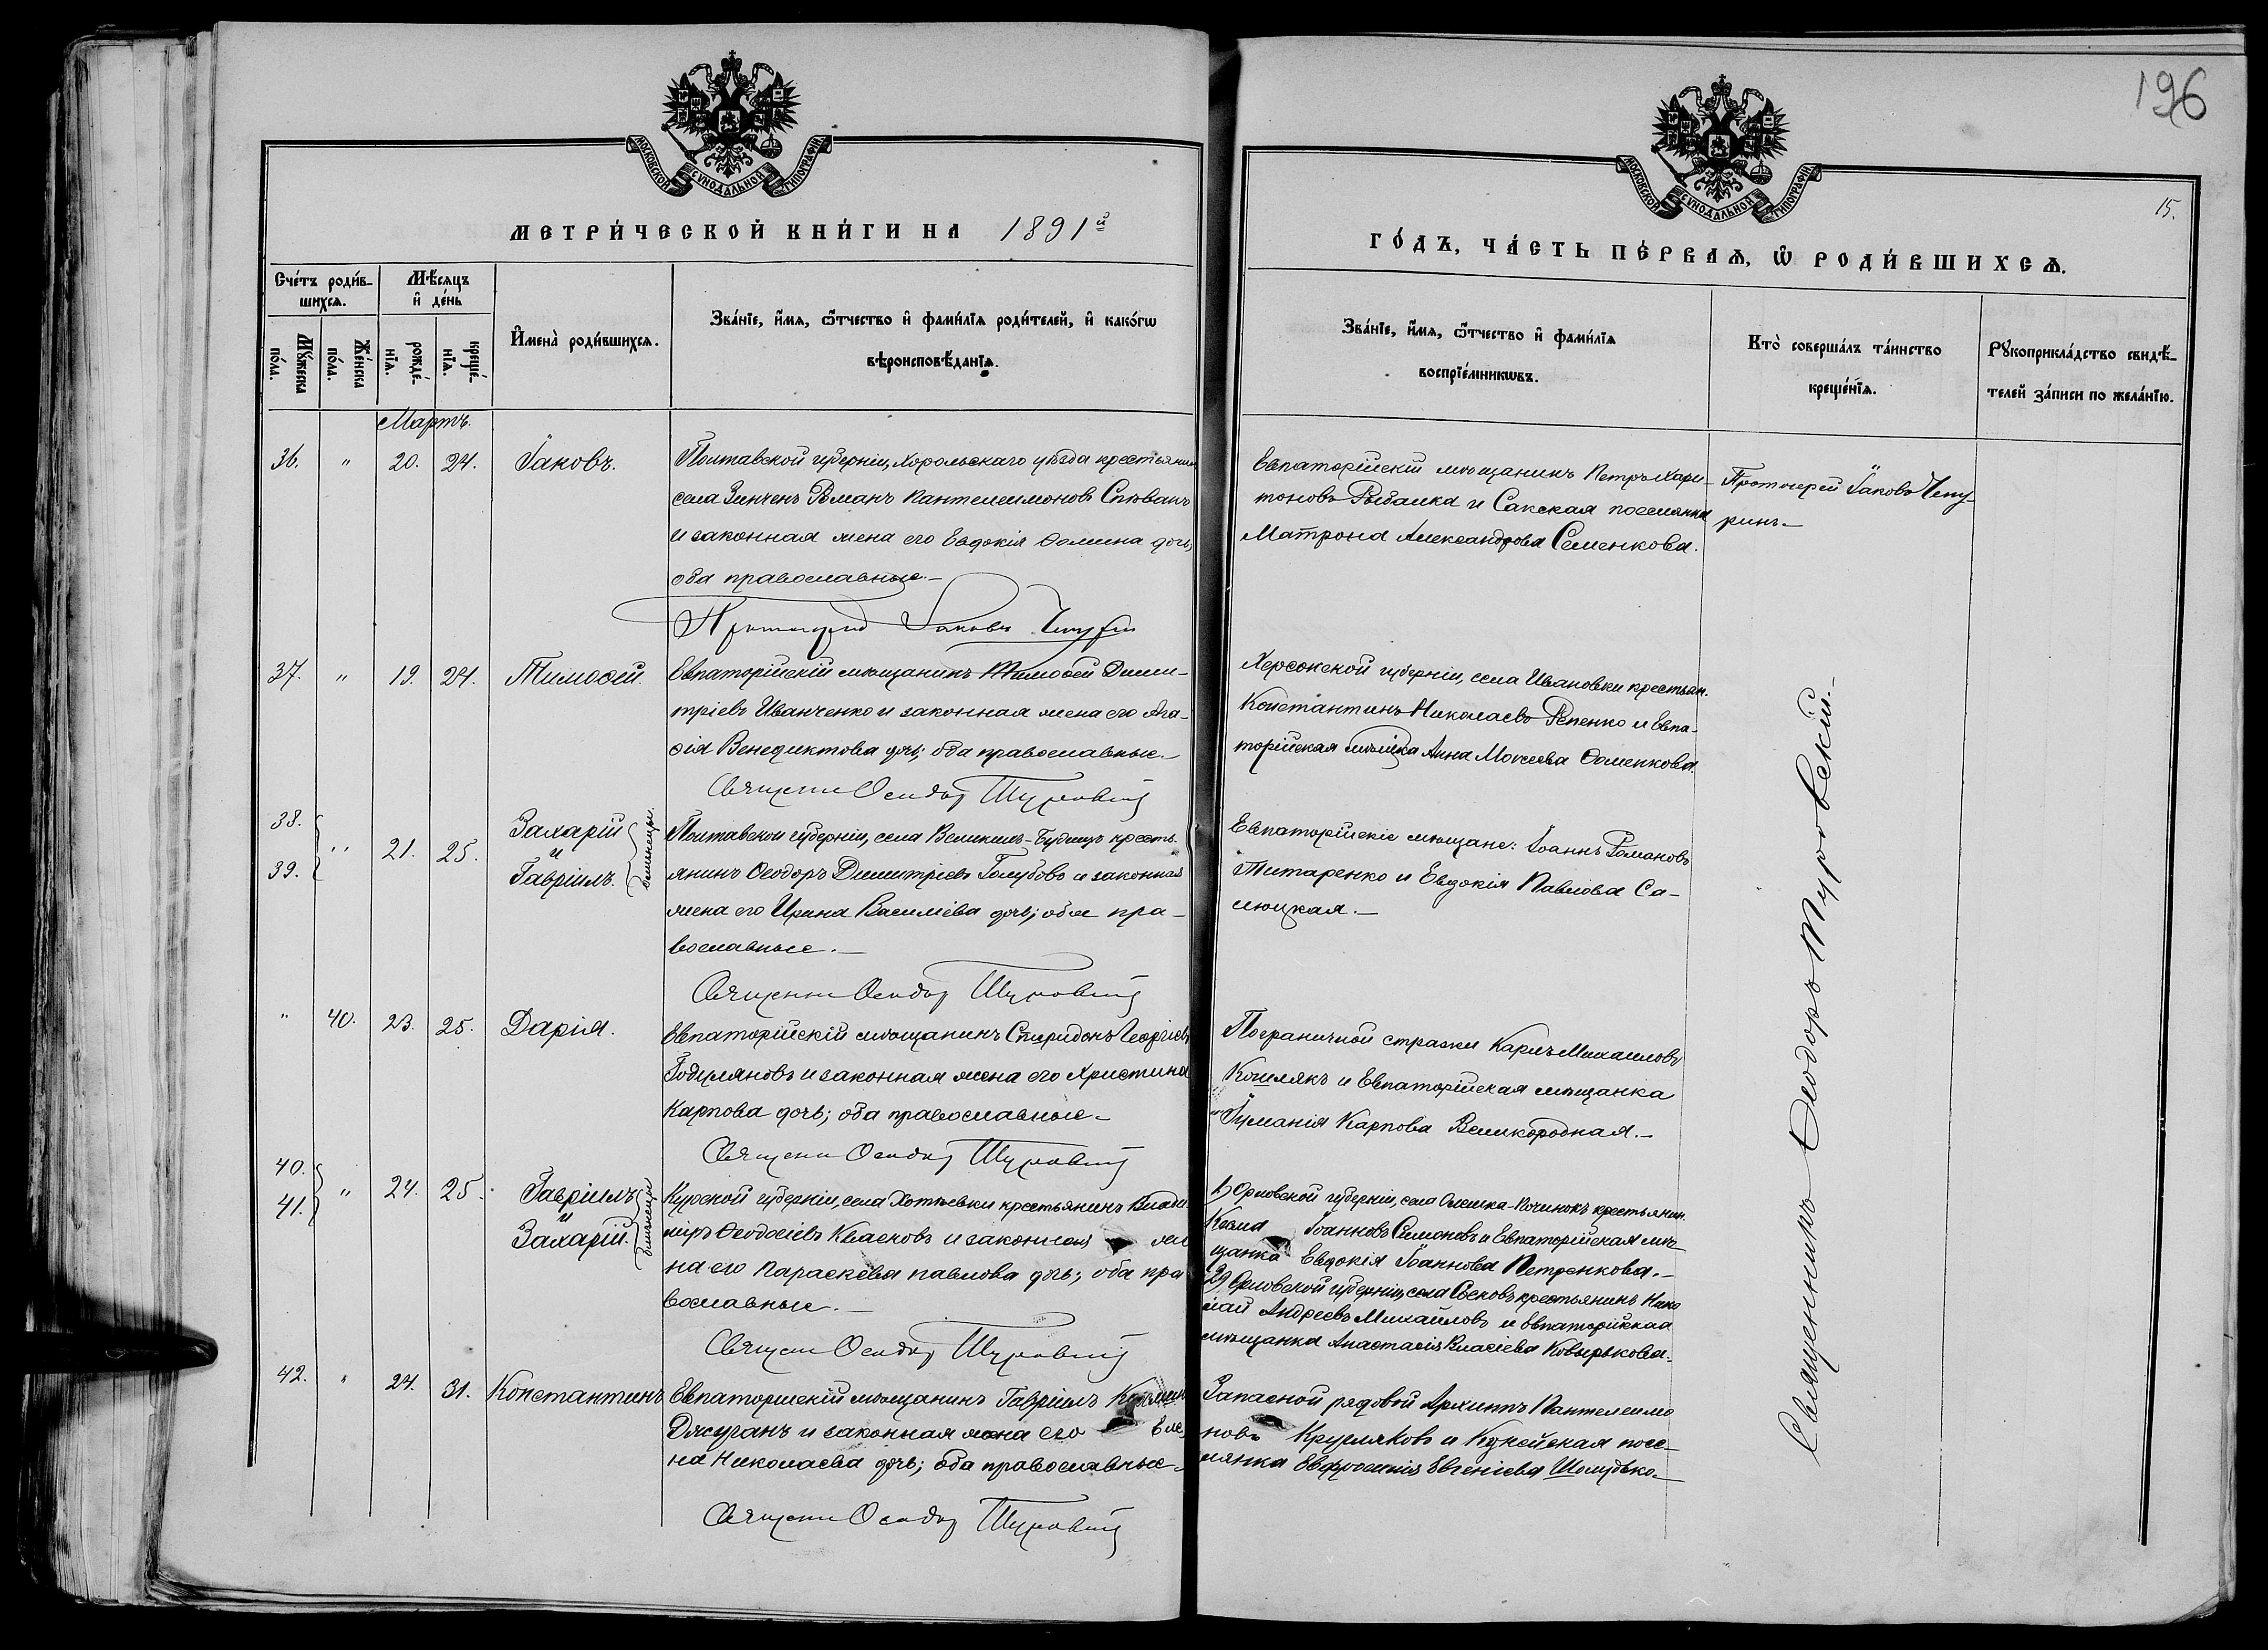 196
МОСКОВСКОЙ СУНОДАЛЬНОЙ ТИПОГРАФІИ
МОСКОВСКОЙ СУНОДАЛЬНОЙ ТИПОГРАФІИ
15.
МЕТРИ́ЧЕСКОЙ КНИ́ГИ НА 1891й
ГО́ДЪ, ЧА́СТЬ ПЕ́РВАѦ, Ѡ РОДИ́ВШИХСѦ.
Сче́тъ роди́в-
шихсѧ.
Мꙋ́жеска
по́ла.
Же́нска
по́ла.
Мѣ́сѧцъ
и҆ де́нь
рожде́-
нїѧ.
креще́-
нїѧ.
И҆мена̀ роди́вшихсѧ.
Зва́нїе, и҆́мѧ, ѻ҆́тчество и҆ фами́лїѧ роди́телей, и҆ како́гѡ
вѣроисповѣ́данїѧ.
Зва́нїе, и҆́мѧ, ѻ҆́тчество и҆ фами́лїѧ
воспрїе́мникѡвъ.
Кто̀ соверша́лъ та́инство
креще́нїѧ.
Рꙋкоприкла́дство свидѣ́-
телей за́писи по жела́нїю.
Мартъ.
36. " 20. 24. Іаковъ.
Полтавской губерніи, Хорольскаго уѣзда крестьянинъ
села Зинченъ Романъ Пантелеимоновъ Спѣвакъ
и законная жена его Евдокія Ѳомина дочь,
оба православные.-
Протоіерей Іаковъ Чепурин
Евпаторійскій мѣщанинъ Петръ Хари-
тоновъ Рыбалка и Сакская поселянка
Матрона Александрова Семенкова.
Протоіерей Іаковъ Чепу-
ринъ-
37. " 19. 24. Тимоѳей.
Евпаторійскій мѣщанинъ Тимоѳей Дими-
тріевъ Иванченко и законная жена его Ага-
ѳія Венедиктова дочь; оба православные.-
Священн Ѳеодор Туровскій
Херсонской губерніи, села Ивановки крестьян.
Константинъ Николаевъ Репенко и Евпа-
торійская Анна Моисеева Ѳоменкова.
38.
39. " 21. 25. Захарій
и
Гавріилъ. близнецы.
Полтавской губерніи, села Великихъ-Будищъ кресть-
янинъ Ѳеодоръ Димитріевъ Голубовъ и законная
жена его Ирина Василіева дочь; оба пра-
вославные.-
Священн Ѳеодор Туровскій
Евпаторійскіе мѣщане: Іоаннъ Романовъ
Титаренко и Евдокія Павлова Са-
люцкая.-
" 40. 23. 25. Дарія.
Евпаторійскій мѣщанинъ Спиридонъ Георгіевъ
и законная жена его Христина
Карпова дочь; оба православные-
Священн Ѳеодор Туровскій
Пограничной стражи Карлъ Михаиловъ
Кошлякъ и Евпаторійская мѣщанка
Іуліанія Карпова Великородная.-
40.
41. " 24. 25. Гавріилъ
и
Захарій. близнецы
Курской губерніи, села Хотѣевки крестьянинъ Влади-
міръ Ѳеодосіевъ Квасковъ и законная же
на его Параскева Павлова дочь; оба пра
вославные.-
Священн Ѳеодор Туровскій
1) Орловской губерніи, села крестьянин.
Козма Іоанновъ Симоновъ и Евпаторійская мѣ-
щанка Евдокія Іоаннова Петренкова.-
2) Орловской губерніи, села крестьянинъ Нико
лай Андреевъ Михайловъ и Евпаторійская
мѣщанка Анастасія Власіева Ковырькова.-
42. " 24. 31. Константинъ
Евпаторійскій мѣщанинъ Гавріилъ
Джуганъ и законная жена его Еле
на Николаева дочь; оба православные.-
Священн Ѳеодор Туровскій
Запасной рядовой Архиппъ Пантелеимо
новъ Кругляковъ и посе-
лянка Евфросинія Евгеніева Шолудько.-
Священникъ Ѳеодоръ Туровскій.-